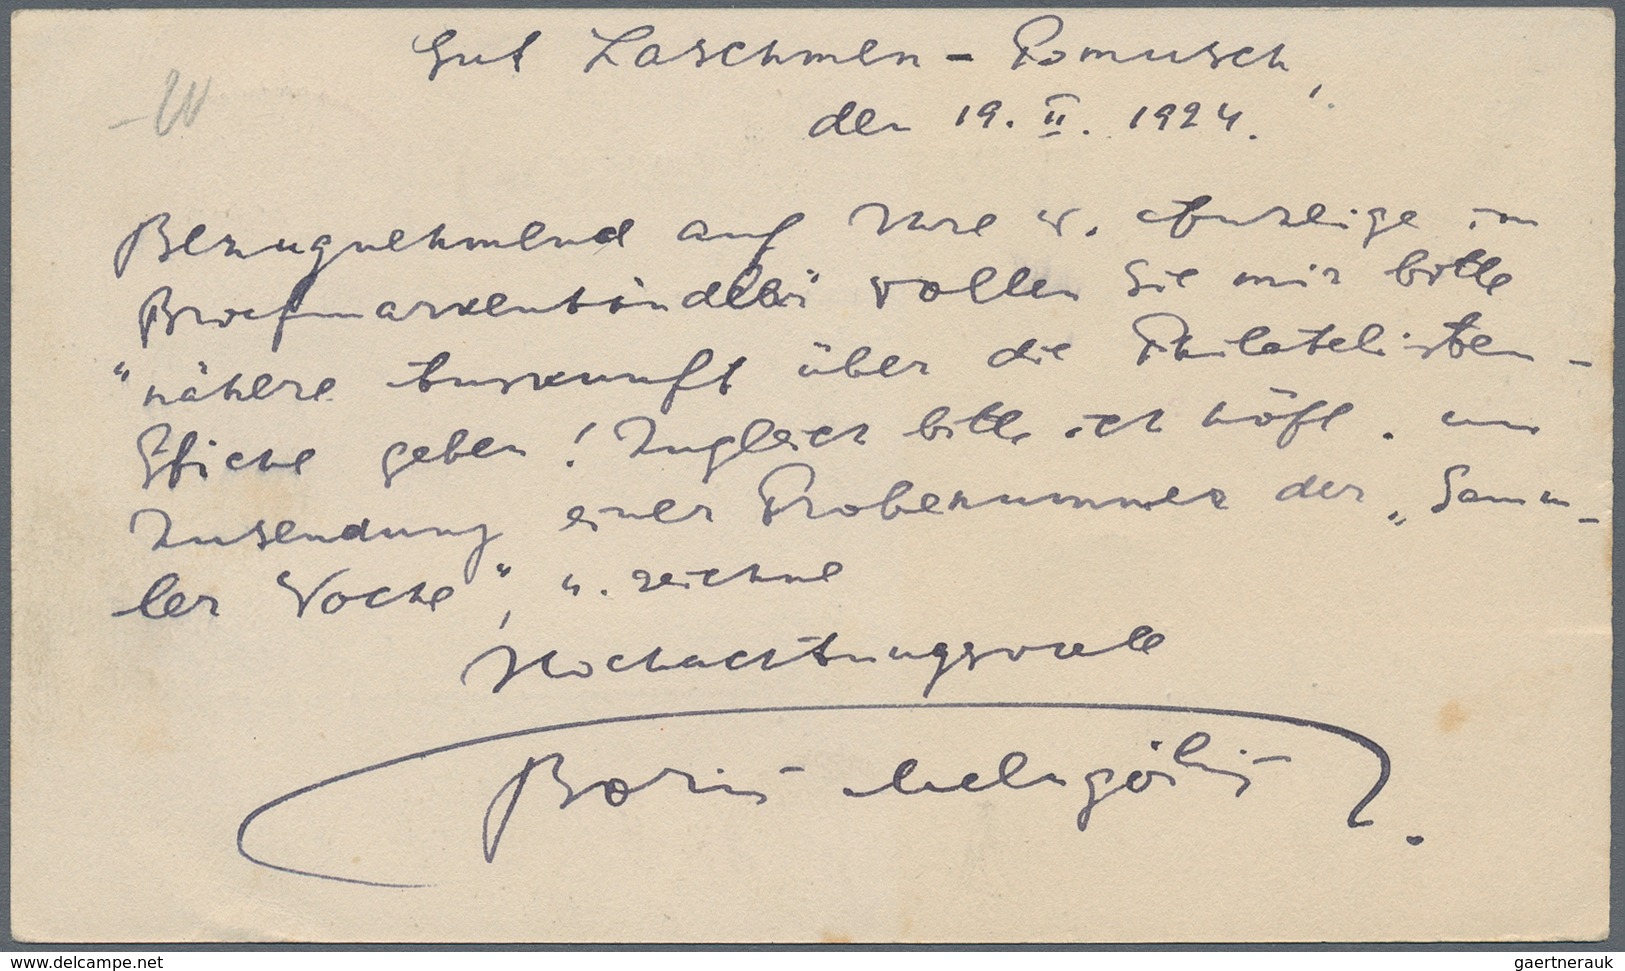 Gut Laschmen - Pomusch,
den 19. II. 1924.
Bezugnehmend auf Ihre w. Anzeige im
Briefmarkenhändler" wollen Sie mir bitte
"nähere Auskunft über die Philatelisten-
Küche geben! Zugleich bitte ich höfl. um
Zusendung einer Probenummer der „Samm-
ler Woche", u. zeichne
Hochachtungsvoll
Boris
www.delcampe.net
gaertnerauk